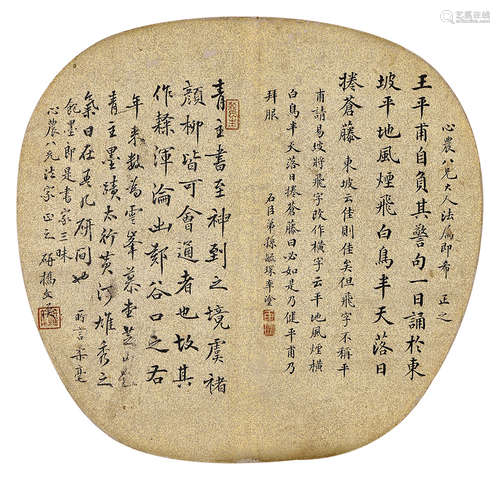 心農八兄大人法屬即希 正之
王平甫自負其警句一日誦於東
坡平地風煙飛白鳥半天落日
捲蒼藤 東坡云佳則佳矣但飛字不稱平
甫請易坡將飛字改作橫字云平地風煙橫
白鳥半天落日捲蒼藤曰必如是乃健平甫乃
拜服
石臣弟孫毓琛
青主書至神到之境虞褚
顏柳皆可會通者也故其
作隸渾淪出鄭谷口之右
年來數為雲峯慕堂芝
青主墨蹟太行黃河雄秀之
氣日在几研間也
乾墨即是書家三昧
心農八兄法家正之 研橋文